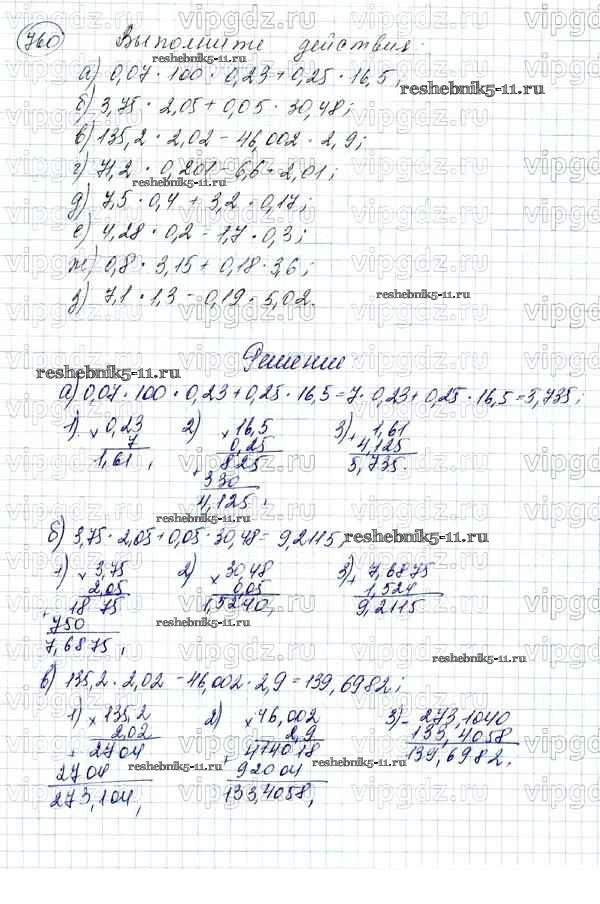 760 Выполните действия:
а) 0,07 · 100 · 0,23 + 0,25 · 16,5;
reshebnik5-11.ru
б) 3,75 · 2,05 + 0,05 · 30,48;
в) 135,2 · 2,02 - 46,002 · 2,9;
г) 71,2 · 0,201 - 6,6 · 2,01;
reshebnik5-11.ru
д) 7,5 · 0,4 + 3,2 · 0,17;
е) 4,28 · 0,2 - 1,7 · 0,3;
ж) 0,8 · 3,15 + 0,18 · 3,6;
з) 7,1 · 1,3 - 0,19 · 5,02.
reshebnik5-11.ru
Решение
reshebnik5-11.ru
а) 0,07 · 100 · 0,23 + 0,25 · 16,5 = 7 · 0,23 + 0,25 · 16,5 = 5,735;
1) × 0,23 2) × 16,5 3) + 1,61
7 0,25 4,125
1,61, + 825 5,735.
330
4,125,
reshebnik5-11.ru
б) 3,75 · 2,05 + 0,05 · 30,48 = 9,2115;
reshebnik5-11.ru
1) × 3,75 2) × 30,48 3) + 7,6875
2,05 0,05 1,524
+ 1875 1,5240, 9,2115
750
7,6875,
reshebnik5-11.ru
в) 135,2 · 2,02 - 46,002 · 2,9 = 139,6982;
1) × 135,2 2) × 46,002 3) - 273,1040
2,02 2,9 133,4058
+ 2704 + 414018 139,6982.
2704 92004
273,104, 133,4058,
reshebnik5-11.ru
vipgdz.ru